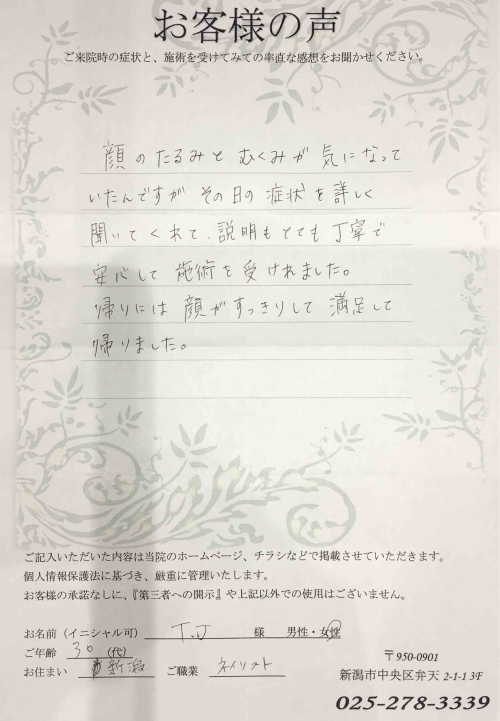 お客様の声
ご来院時の症状と、施術を受けてみての率直な感想をお聞かせください。
顔のたるみとむくみが気になって
いたんですがその日の症状を詳しく
聞いてくれて、説明もとても丁寧で
安心して施術を受けれました。
帰りには顔がすっきりして満足して
帰りました。
ご記入いただいた内容は当院のホームページ、チラシなどで掲載させていただきます。
個人情報保護法に基づき、厳重に管理いたします。
お客様の承諾なしに、『第三者への開示』や上記以外での使用はございません。
お名前（イニシャル可） T.J 様 男性・女性
ご年齢 30 （代）
お住まい 新潟 ご職業 ネイリスト
〒950-0901
新潟市中央区弁天 2-1-1 3F
025-278-3339